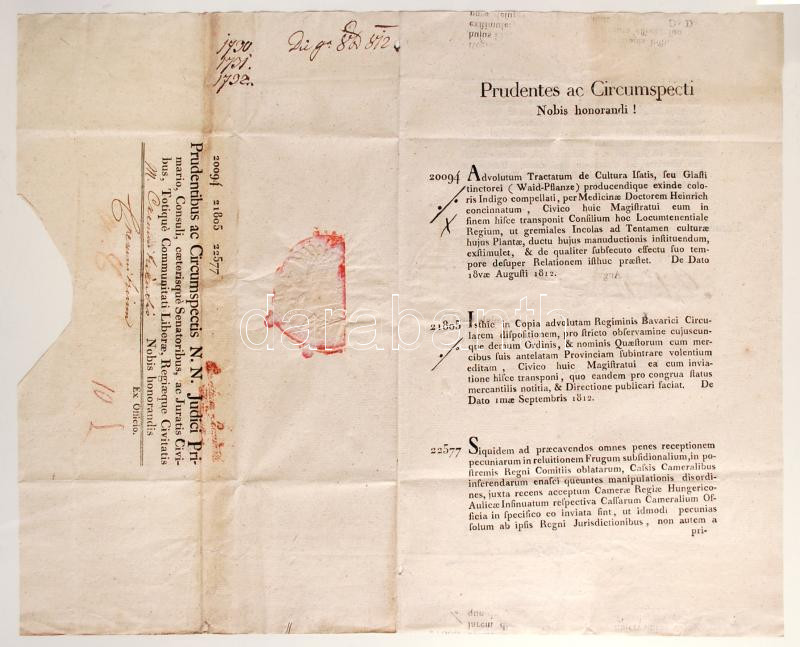 1790.
1791.
1792.
20094 21805 22577
Prudentibus ac Circumspectis N. N. Judici Pri-
mario, Consuli, cæterisquè Senatoribus, ac Juratis Civi-
bus, Totiquè Communitati Liberæ, Regiæque Civitatis
Nobis honorandis
Ex Officio.
10
darabanth.com
Prudentes ac Circumspecti
Nobis honorandi !
20094 Advolutum Tractatum de Cultura Iſatis, ſeu Glaſti
tinctorei ( Waid-Pflanze) producendique exinde colo-
ris Indigo compellati, per Medicinæ Doctorem Heinrich
concinnatum , Civico huic Magiſtratui eum in
finem hiſce transponit Conſilium hoc Locumtenentiale
Regium, ut gremiales Incolas ad Tentamen culturæ
hujus Plantæ, ductu hujus manuductionis inſtituendum,
exſtimulet, & de qualiter ſubſecuto effectu ſuo tem-
pore deſuper Relationem iſthuc præſtet. De Dato
18væ Auguſti 1812.
21805 Iſthic in Copia advolutam Regiminis Bavarici Circu-
larem diſpoſitionem, pro ſtricto obſervamine cujuscun-
que demum Ordinis, & nominis Quæſtorum cum mer-
cibus ſuis antelatam Provinciam ſubintrare volentium
editam , Civico huic Magiſtratui ea cum invia-
tione hiſce transponi, quo eandem pro congrua ſtatus
mercantilis notitia, & Directione publicari faciat. De
Dato 1mæ Septembris 1812.
22577 Siquidem ad præcavendos omnes penes receptionem
pecuniarum in reluitionem Frugum ſubſidionalium, in po-
ſtremis Regni Comitiis oblatarum, Caſſis Cameralibus
inferendarum enaſci queuntes manipulationis disordi-
nes, juxta recens acceptum Cameræ Regiæ Hungarico-
Aulicæ Inſinuatum reſpectiva Caſſarum Cameralium Of-
ficia in ſpecifico eo inviata ſint, ut idmodi pecunias
ſolum ab ipſis Regni Jurisdictionibus, non autem a
pri-